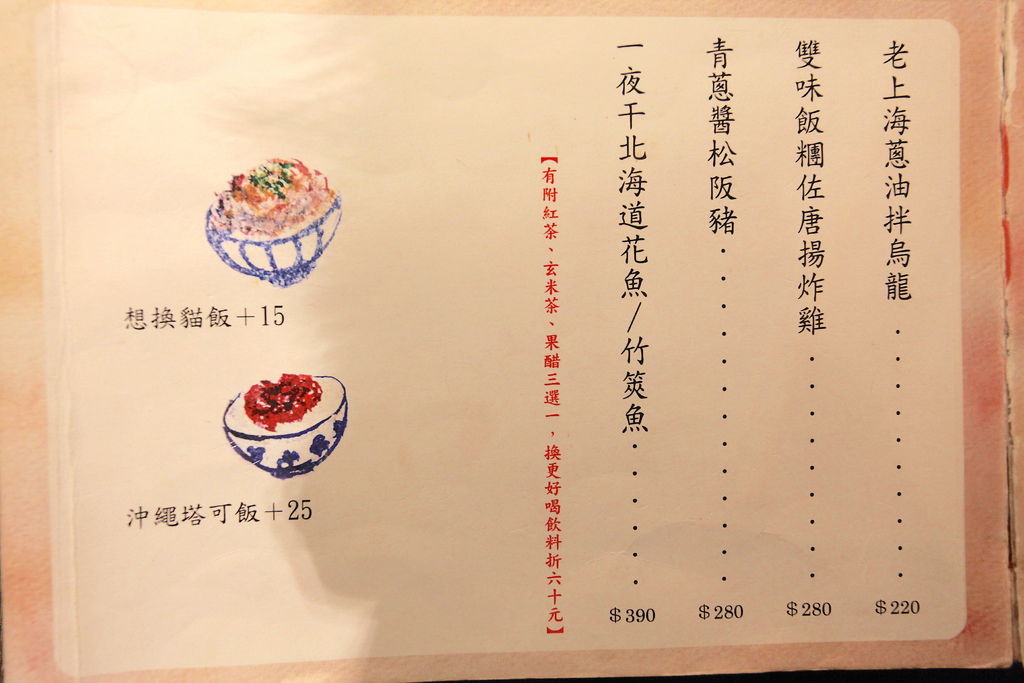 老上海蔥油拌烏龍 · · · · · · · · · · $220
雙味飯糰佐唐揚炸雞 · · · · · · · · · $280
青蔥醬松阪豬 · · · · · · · · · · · · · $280
一夜干北海道花魚/竹筴魚 · · · · · · $390
【有附紅茶、玄米茶、果醋三選一,換更好喝飲料折六十元】
想換貓飯+15
沖繩塔可飯+25